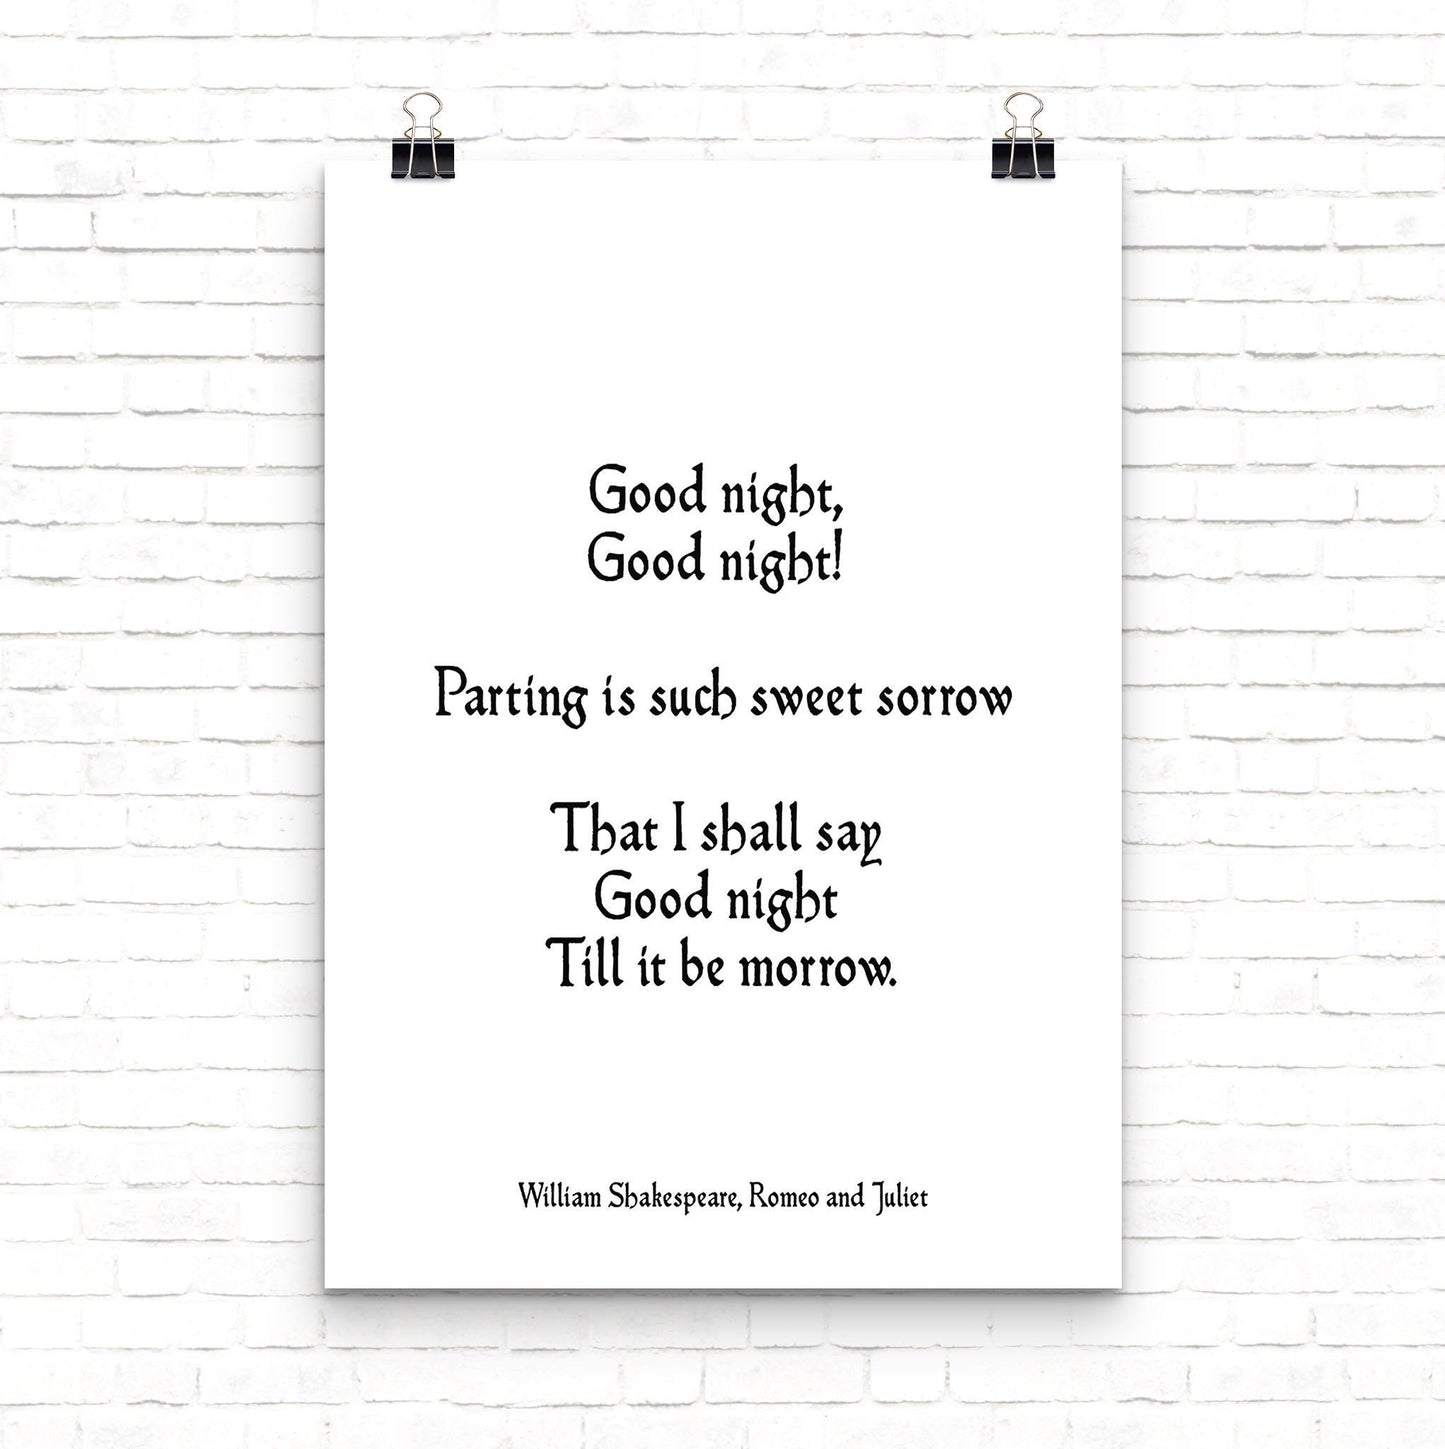 Good night,
Good night!
Parting is such sweet sorrow
That I shall say
Good night
Till it be morrow.
William Shakespeare, Romeo and Juliet